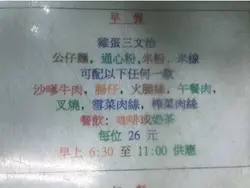 早餐
雞蛋三文治
公仔麵, 通心粉, 米粉, 米線
可配以下任何一款
沙嗲牛肉, 腸仔, 火腿絲, 午餐肉,
叉燒, 雪菜肉絲, 榨菜肉絲
餐飲: 咖啡或奶茶
每位 26 元
早上 6:30 至 11:00 供應